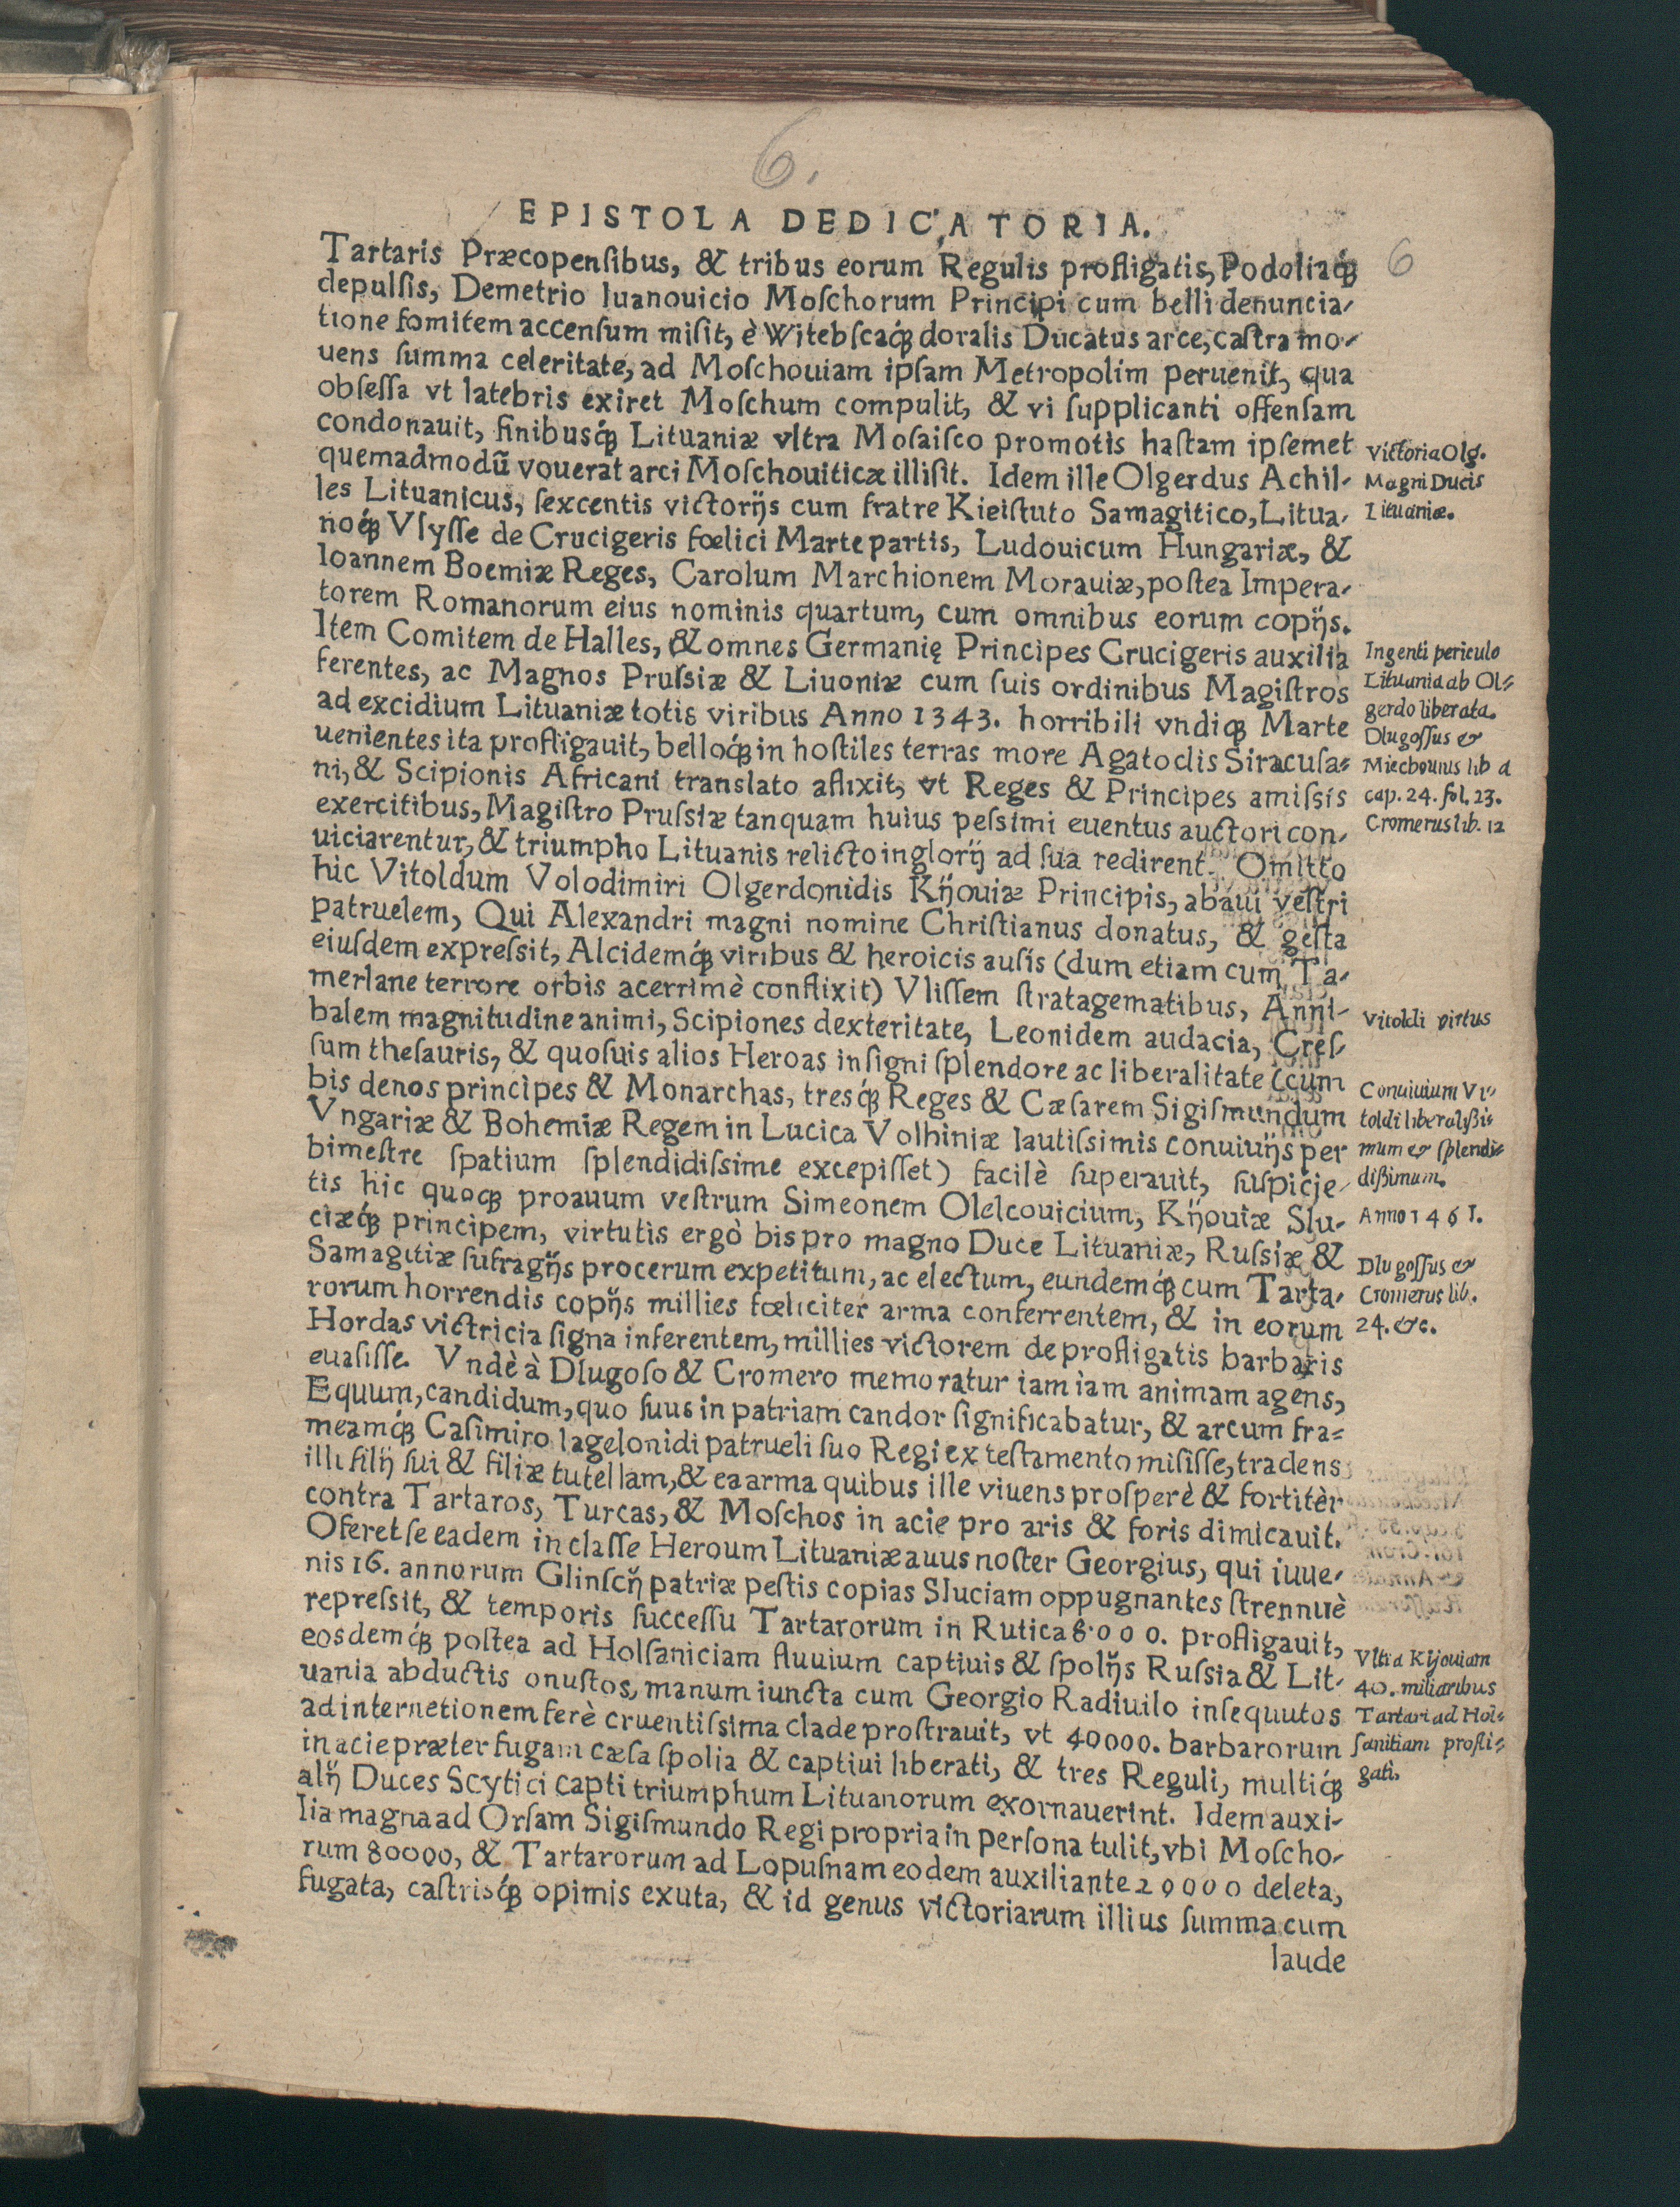 6.
EPISTOLA DEDICATORIA.
6
Tartaris Præcopenſibus, & tribus eorum Regulis profligatis, Podoliaq́ꝫ
depulſis, Demetrio Iuanouicio Moſchorum Principi cum belli denuncia-
tione fomitem accenſum miſit, è Witebſcaq́ꝫ doralis Ducatus arce, caſtra mo-
uens ſumma celeritate, ad Moſchouiam ipſam Metropolim peruenit, qua
obſeſſa vt latebris exiret Moſchum compulit, & vi ſupplicanti offenſam
condonauit, finibusq́ꝫ Lituaniæ vltra Moſaiſco promotis haſtam ipſemet
quemadmodũ vouerat arci Moſchouiticæ illiſit. Idem ille Olgerdus Achil-
les Lituanicus, ſexcentis victorijs cum fratre Kieiſtuto Samagitico, Litua-
noq́ꝫ Vlyſſe de Crucigeris fœlici Marte partis, Ludouicum Hungariæ, &
Ioannem Boemiæ Reges, Carolum Marchionem Morauiæ, poſtea Impera-
torem Romanorum eius nominis quartum, cum omnibus eorum copijs.
Item Comitem de Halles, & omnes Germanię Principes Crucigeris auxilia
ferentes, ac Magnos Pruſsiæ & Liuoniæ cum ſuis ordinibus Magiſtros
ad excidium Lituaniæ totis viribus Anno 1343. horribili vndiqꝫ Marte
uenientes ita profligauit, belloq́ꝫ in hoſtiles terras more Agatoclis Siracuſa-
ni, & Scipionis Africani translato aflixit, vt Reges & Principes amiſsis
exercitibus, Magiſtro Pruſsiæ tanquam huius peſsimi euentus auctori con-
uiciarentur, & triumpho Lituanis relicto inglorij ad ſua redirent. Omitto
hic Vitoldum Volodimiri Olgerdonidis Kijouiæ Principis, abaui veſtri
patruelem, Qui Alexandri magni nomine Chriſtianus donatus, & geſta
eiuſdem expreſsit, Alcidemq́ꝫ viribus & heroicis auſis (dum etiam cum Ta-
merlane terrore orbis acerrimè conflixit) Vliſſem ſtratagematibus, Anni-
balem magnitudine animi, Scipiones dexteritate, Leonidem audacia, Creſ-
ſum theſauris, & quoſuis alios Heroas inſigni ſplendore ac liberalitate (cum
bis denos principes & Monarchas, tresq́ꝫ Reges & Cæſarem Sigiſmundum
Vngariæ & Bohemiæ Regem in Lucica Volhiniæ lautiſsimis conuiuijs per
bimeſtre ſpatium ſplendidiſsime excepiſſet) facilè ſuperauit, ſuſpicje-
tis hic quoqꝫ proauum veſtrum Simeonem Olelcouicium, Kijouiæ Slu-
ciæq́ꝫ principem, virtutis ergò bis pro magno Duce Lituaniæ, Ruſsiæ &
Samagitiæ ſufragijs procerum expetitum, ac electum, eundemq́ꝫ cum Tarta-
rorum horrendis copijs millies fœliciter arma conferrentem, & in eorum
Hordas victricia ſigna inferentem, millies victorem de profligatis barbaris
euaſiſſe. Vndè à Dlugoſo & Cromero memoratur iam iam animam agens,
Equum, candidum, quo ſuus in patriam candor ſignificabatur, & arcum fra-
meamq́ꝫ Caſimiro Iagelonidi patrueli ſuo Regi ex teſtamento miſiſſe, tradens
illi filij ſui & filiæ tutellam, & ea arma quibus ille viuens proſperè & fortitèr
contra Tartaros, Turcas, & Moſchos in acie pro aris & foris dimicauit.
Oferet ſe eadem in claſſe Heroum Lituaniæ auus noſter Georgius, qui iuue-
nis 16. annorum Glinſcij patriæ peſtis copias Sluciam oppugnantes ſtrennuè
repreſsit, & temporis ſucceſſu Tartarorum in Rutica 8000. profligauit,
eosdemq́ꝫ poſtea ad Holſaniciam fluuium captiuis & ſpolijs Ruſsia & Lit-
uania abductis onuſtos, manum iuncta cum Georgio Radiuilo inſequutos
ad internetionem ferè cruentiſsima clade proſtrauit, vt 40000. barbarorum
in acie præter fugam cæſa ſpolia & captiui liberati, & tres Reguli, multiq́ꝫ
alij Duces Scytici capti triumphum Lituanorum exornauerint. Idem auxi-
lia magna ad Orſam Sigiſmundo Regi propria in perſona tulit, vbi Moſcho-
rum 80000, & Tartarorum ad Lopuſnam eodem auxiliante 20000 deleta,
fugata, caſtrisq́ꝫ opimis exuta, & id genus victoriarum illius ſumma cum
laude
Victoria Olg.
Magni Ducis
Lituaniæ.
Ingenti periculo
Lituania ab Ol-
gerdo liberata.
Dlugoſſus &
Miechouius lib 4
cap. 24. fol. 23.
Cromerus lib. 12
Vitoldi virtus
Conuiuium Vi-
toldi liberalißi-
mum & ſplendi-
dißimum.
Anno 1461.
Dlugoſſus &
Cromerus lib.
24. &c.
Vltra Kijouiam
40. miliaribus
Tartari ad Hol-
ſanitiam profli-
gati.